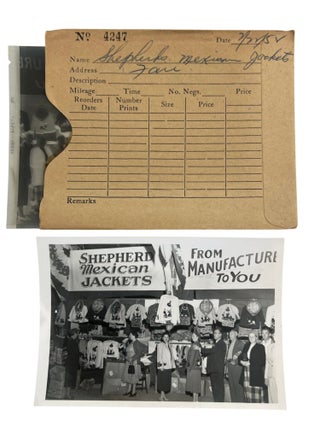 No 4247 Date 7/27/52
Name Shepherds Mexican Jackets
Address Fair
Description
Mileage Time No. Negs. Price
Reorders Number Size Price
Date Prints
Remarks
SHEPHERD FROM
Mexican MANUFACTURE
JACKETS To YOU